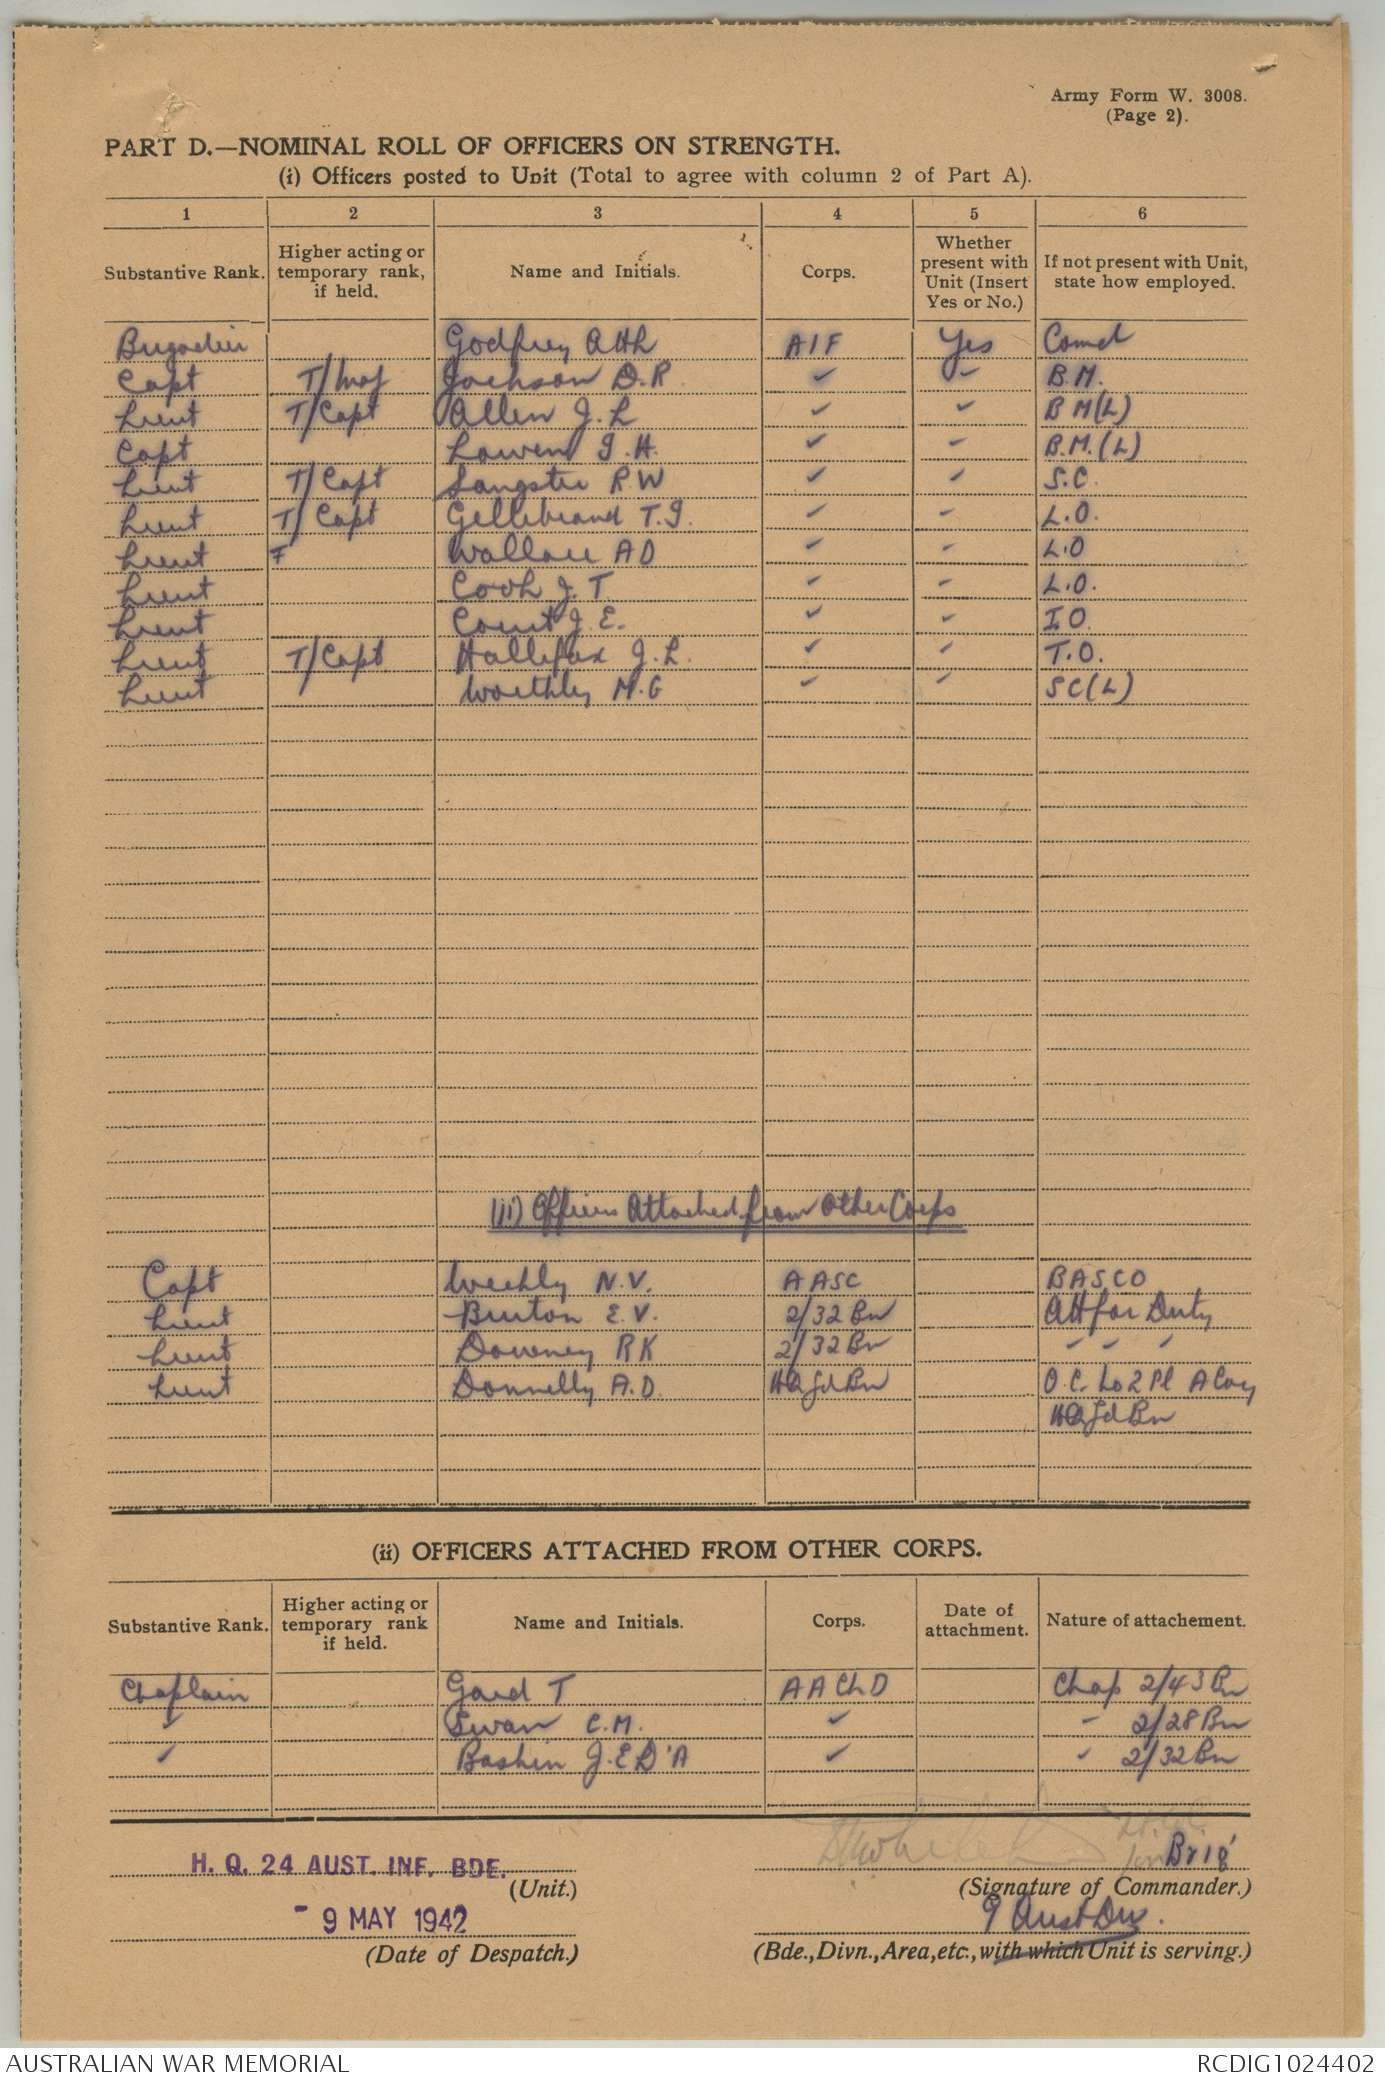 Army Form W. 3008.
(Page 2).
PART D.—NOMINAL ROLL OF OFFICERS ON STRENGTH.
(i) Officers posted to Unit (Total to agree with column 2 of Part A).
1 2 3 4 5 6
Substantive Rank. Higher acting or temporary rank, if held. Name and Initials. Corps. Whether present with Unit (Insert Yes or No.) If not present with Unit, state how employed.
Brigadier Godfrey AHL AIF Yes Comd
Capt T/Maj Jackson D.R. ✓ ✓ B.M.
Lieut T/Capt Allen J.L ✓ ✓ BM(L)
Capt Lowen I.H. ✓ ✓ B.M.(L)
Lieut T/Capt Sangster RW ✓ ✓ S.C.
Lieut T/Capt Gellibrand T.I. ✓ ✓ L.O.
Lieut Wallace AD ✓ ✓ L.O
Lieut Cook J.T. ✓ ✓ L.O.
Lieut Court J.E. ✓ ✓ I.O.
Lieut T/Capt Hallifax J.L. ✓ ✓ T.O.
Lieut Worthley M.G ✓ ✓ SC(L)
(ii) Officers Attached from Other Corps
Capt Weekly N.V. AASC BASCO
Lieut Burton E.V. 2/32 Bn Att for Duty
Lieut Downey RK 2/32 Bn " " "
Lieut Donnelly A.D. HQ Gd Bn O.C. No 2 Pl A Coy
HQ Gd Bn
(ii) OFFICERS ATTACHED FROM OTHER CORPS.
Substantive Rank. Higher acting or temporary rank if held. Name and Initials. Corps. Date of attachment. Nature of attachement.
Chaplain Gard T AAChD Chap 2/43 Bn
✓ Swan C.M. ✓ " 2/28 Bn
✓ Baskin J.E D'A ✓ " 2/32 Bn
H. Q. 24 AUST. INF. BDE. Brig
(Unit.) (Signature of Commander.)
- 9 MAY 1942 9 Aust Div.
(Date of Despatch.) (Bde., Divn., Area, etc., with which Unit is serving.)
AUSTRALIAN WAR MEMORIAL RCDIG1024402